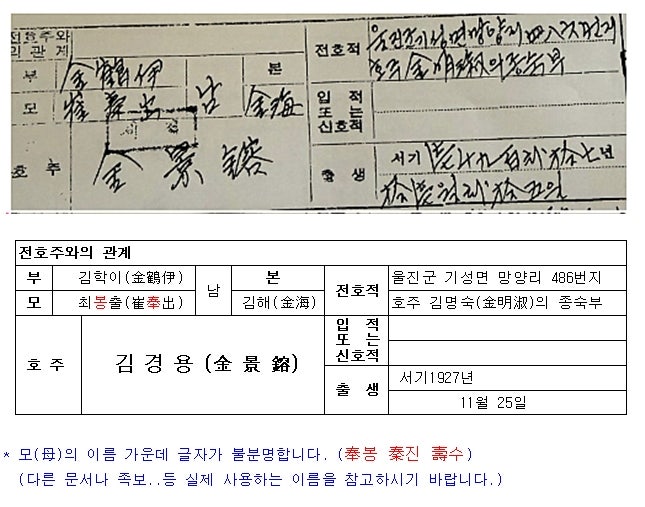 전호주와
의 관계
부 金鶴伊 본
모 崔 出 男 金海
호 주 金景鎔
전호적 울진군기성면망양리四八六번지
호주 金明淑의종숙부
입 적
또 는
신호적
출 생 서기壹千九百貳拾七년
拾壹월貳拾五일
전호주와의 관계
부 김학이(金鶴伊) 남 본 전호적 울진군 기성면 망양리 486번지
모 최봉출(崔奉出) 김해(金海) 호주 김명숙(金明淑)의 종숙부
호 주 김 경 용 (金 景 鎔)
입 적
또 는
신호적
출 생 서기1927년
11월 25일
* 모(母)의 이름 가운데 글자가 불분명합니다. (奉봉 秦진 壽수)
(다른 문서나 족보..등 실제 사용하는 이름을 참고하시기 바랍니다.)